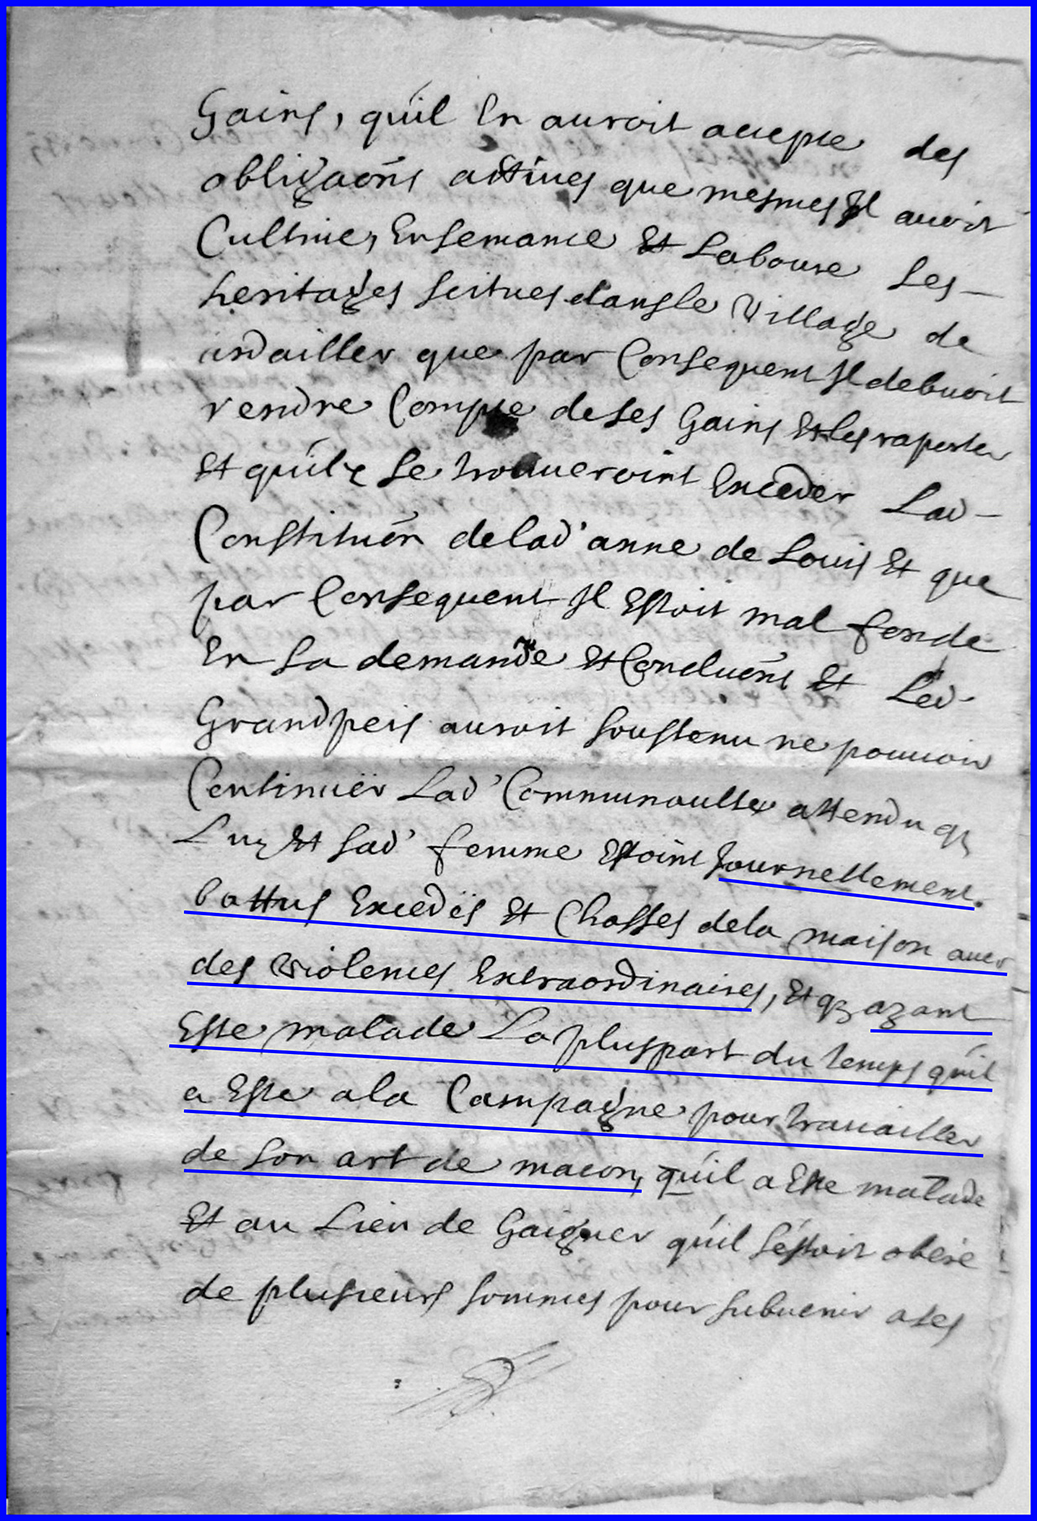 Gains, qu'il En auroit accepte des
obligaōns actives que mesmes Il avoit
Cultive, Ensemance Et Laboure Les
heritages scitues dans le Village de
que par Consequent Il debvoit
rendre Compte de ses Gains Et les raporter
Et qu'ilz se trouveroint Exceder Lad
Constituōn de lad' anne de Louis Et que
par Consequent Il Estoit mal fonde
En sa demande Et Concluōns Et Led
Grandpeis auroit soustenu ne pouvoir
Continuër Lad' Communaulte attendu q3
Luy Et sad' femme Estoint Journellement
battus Excedës Et Chasses de la maison avec
des violences Extraordinaires, Et q3 ayant
Este malade La pluspart du temps qu'il
a Este a la Campagne pour travailler
de son art de macon, qu'il a Este malade
Et au Lieu de Gaigner qu'il s'estoit obéré
de plusieurs sommes pour subvenir a ses